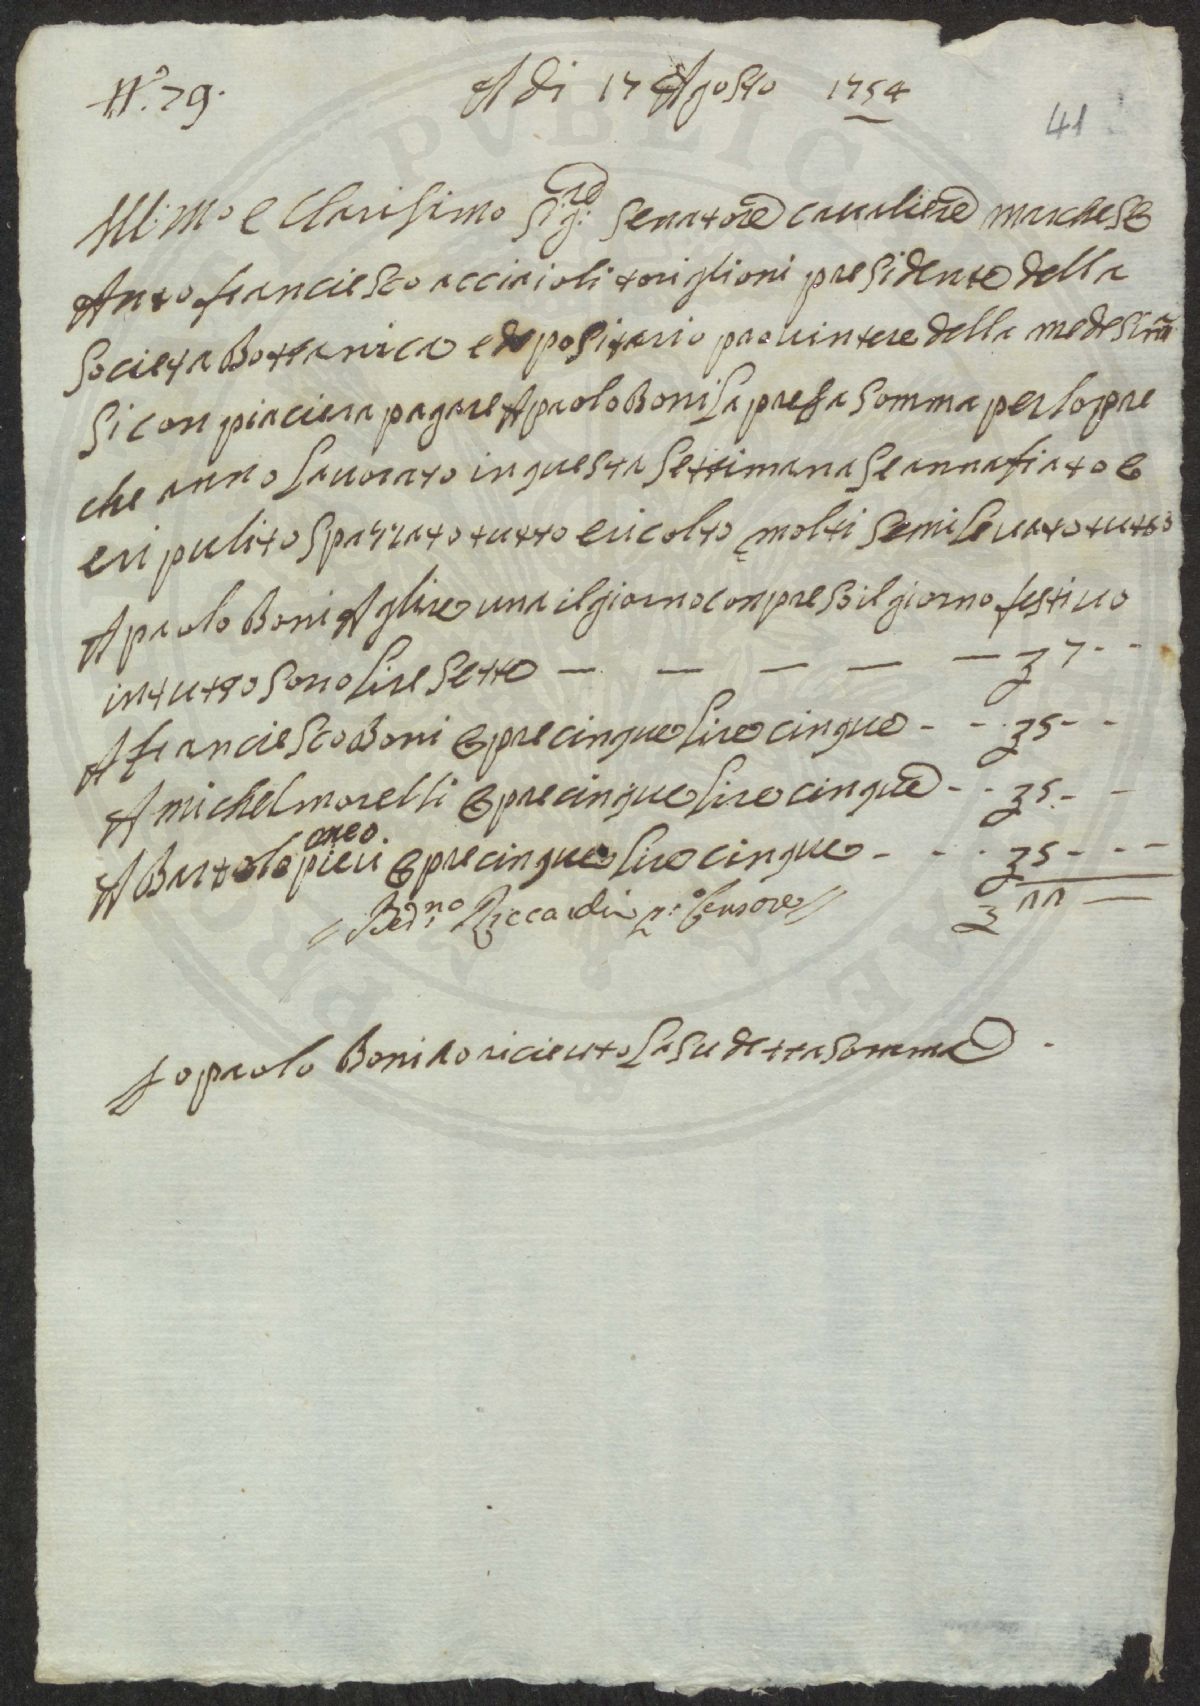 N.° 79.
A di 17 Agosto 1754
41
Ill:mo e Clarisimo Sig:re Senatore caualiere marchese
Anto franciesco acciaioli toriglioni presidente della
Societa Bottanica e depositario prouintere della medesima
Si conpiaciera pagare A paolo Boni la presa Somma per lopre
che anno lauorato in questa Settimana Se annafiato e
eri pulito Spazzato tutto e ricolto molti Semi leuato tutto
A paolo Boni A glire una il giorno conpreso il giorno festiuo
in tutto Sono lire Sette — — — — — 7 - -
A franciesco Boni e pre cinque lire cinque - - - 5 - -
A michel morelli e pre cinque lire cinque - - 5 - -
A Bartolomeo pieri e pre cinque lire cinque - - - 5 - - -
22 —
// Bed:no Riccardi Censore //
Io paolo Boni o ricieuto la Su detta Somma
PVBLIC